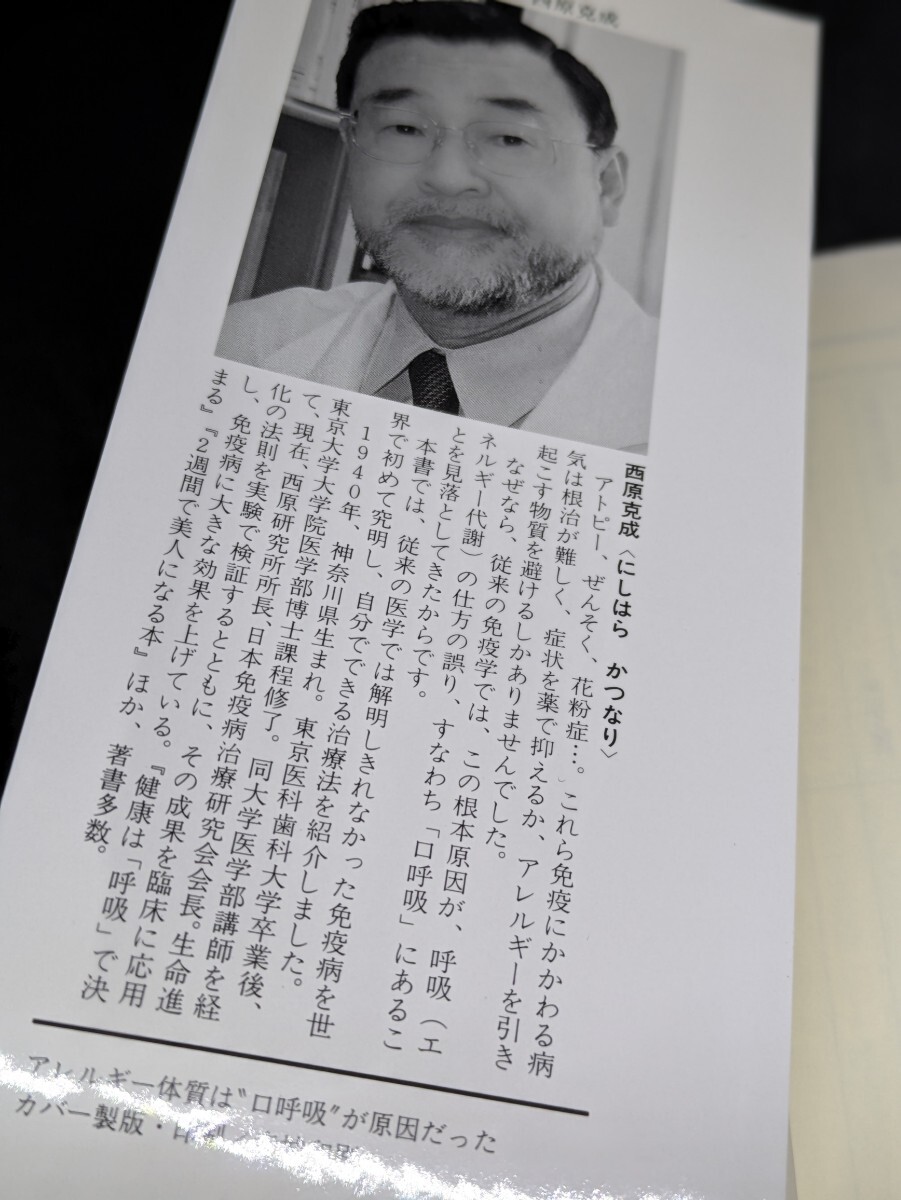 西原克成
西原克成〈にしはら かつなり〉
アトピー、ぜんそく、花粉症…。これら免疫にかかわる病
気は根治が難しく、症状を薬で抑えるか、アレルギーを引き
起こす物質を避けるしかありませんでした。
なぜなら、従来の免疫学では、この根本原因が、呼吸（エ
ネルギー代謝）の仕方の誤り、すなわち「口呼吸」にあるこ
とを見落としてきたからです。
本書では、従来の医学では解明しきれなかった免疫病を世
界で初めて究明し、自分でできる治療法を紹介しました。
1940年、神奈川県生まれ。東京医科歯科大学卒業後、
東京大学大学院医学部博士課程修了。同大学医学部講師を経
て、現在、西原研究所所長、日本免疫病治療研究会会長。生命進
化の法則を実験で検証するとともに、その成果を臨床に応用
し、免疫病に大きな効果を上げている。『健康は「呼吸」で決
まる』『2週間で美人になる本』ほか、著書多数。
アレルギー体質は“口呼吸”が原因だった
カバー製版・印刷